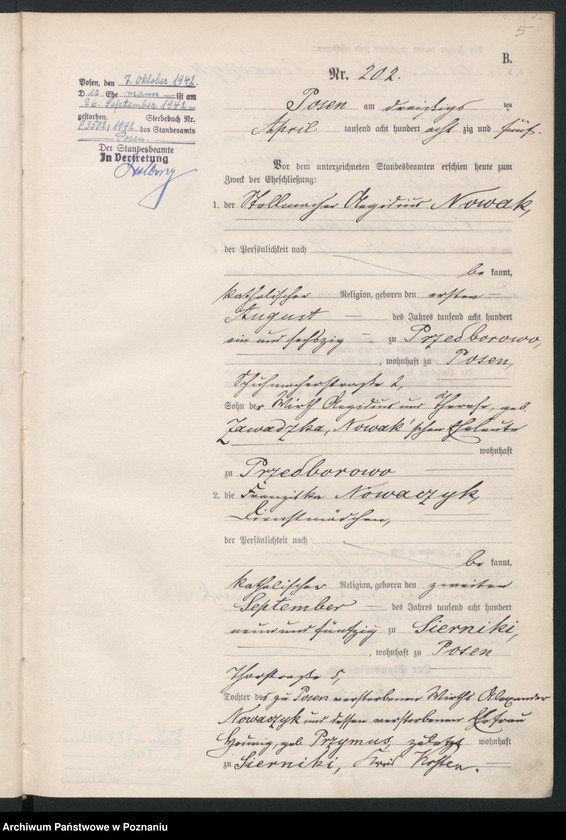 5
B.
Nr. 202.
Posen, den 7. Oktober 1942.
D er Ehe mann ist am
26. September 1942
gestorben. Sterbebuch Nr.
1942 des Standesamts
Posen.
Der Standesbeamte
In Vertretung
Posen am dreißigs ten
April tausend acht hundert acht zig und fünf.
Vor dem unterzeichneten Standesbeamten erschien heute zum
Zweck der Eheschließung:
1. der Stellmacher Aegidius Nowak,
der Persönlichkeit nach
be kannt,
katholischer Religion, geboren den ersten
August des Jahres tausend acht hundert
ein und sechszig zu Przedborowo,
, wohnhaft zu Posen,
Schuhmacherstraße 2,
Sohn der Wirth Aegidius und Therese, geb.
Zawadzka, Nowak'schen Eheleute
wohnhaft
zu Przedborowo
2. die Franziska Nowaczyk,
Dienstmädchen,
der Persönlichkeit nach
be kannt,
katholischer Religion, geboren den zweiten
September des Jahres tausend acht hundert
neun und fünfzig zu Sierniki,
, wohnhaft zu Posen
Thorstraße 5,
Tochter des zu Posen verstorbenen Wirths Alexander
Nowaczyk und dessen verstorbener Ehefrau
geb. Przymus, zuletzt wohnhaft
zu Sierniki, Kreis Kosten.
Archiwum Państwowe w Poznaniu